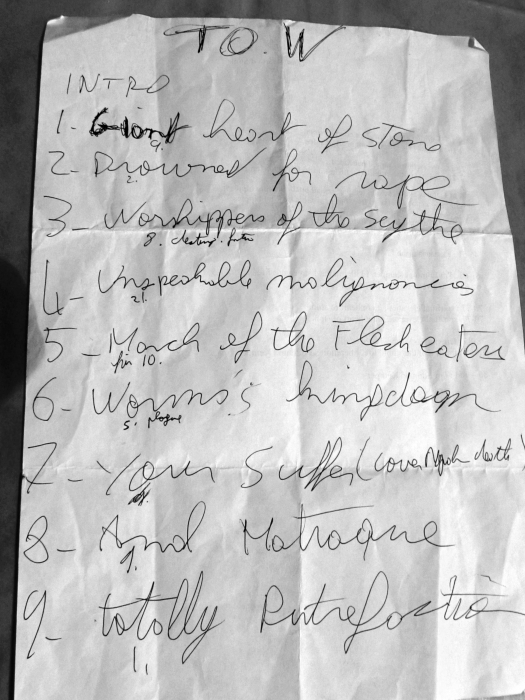 TO.W
INTRO
1. Giant heart of stone
9.
2- Drowned for rape
2.
3- Worshippers of the scythe
8.
4- Unspeakable malignancies
21.
5- March of the Flesh eaters
fin 10.
6- Worms's kingdom
5. plague
7- Your Suffer (cover Napalm death)
8- And Matraque
9.
9- totally Putrefaction
1.